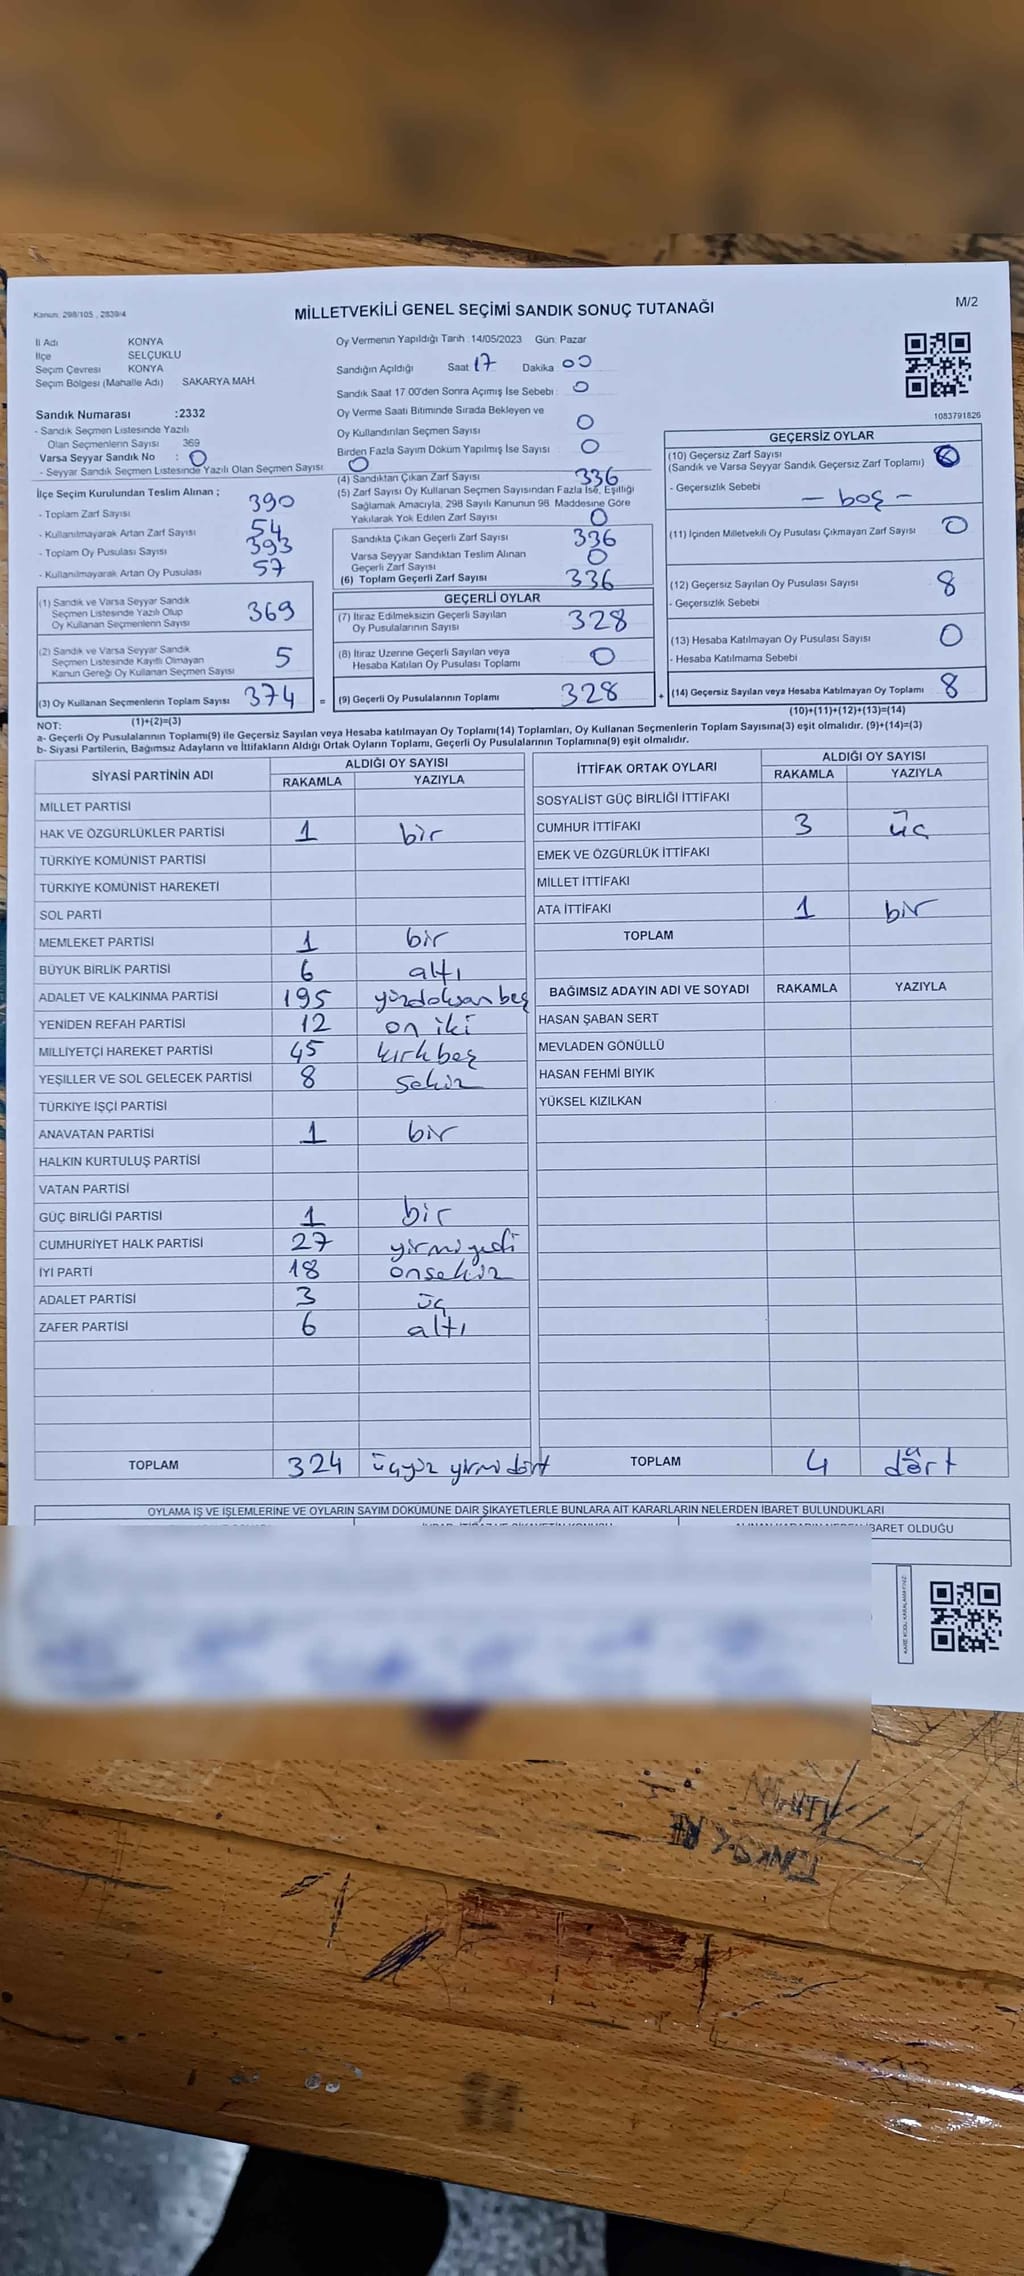 Kanun: 298/105 , 2839/4
MİLLETVEKİLİ GENEL SEÇİMİ SANDIK SONUÇ TUTANAĞI
M/2
İl Adı KONYA
İlçe SELÇUKLU
Seçim Çevresi KONYA
Seçim Bölgesi (Mahalle Adı) SAKARYA MAH.
Sandık Numarası :2332
- Sandık Seçmen Listesinde Yazılı
Olan Seçmenlerin Sayısı 369
Varsa Seyyar Sandık No : 0
- Seyyar Sandık Seçmen Listesinde Yazılı Olan Seçmen Sayısı: 0
İlçe Seçim Kurulundan Teslim Alınan ;
- Toplam Zarf Sayısı 390
- Kullanılmayarak Artan Zarf Sayısı 54
- Toplam Oy Pusulası Sayısı 393
- Kullanılmayarak Artan Oy Pusulası 57
(1) Sandık ve Varsa Seyyar Sandık
Seçmen Listesinde Yazılı Olup
Oy Kullanan Seçmenlerin Sayısı 369
(2) Sandık ve Varsa Seyyar Sandık
Seçmen Listesinde Kayıtlı Olmayan
Kanun Gereği Oy Kullanan Seçmen Sayısı 5
(3) Oy Kullanan Seçmenlerin Toplam Sayısı 374 =
(1)+(2)=(3)
Oy Vermenin Yapıldığı Tarih : 14/05/2023 Gün: Pazar
Sandığın Açıldığı Saat 17 Dakika 00
Sandık Saat 17:00'den Sonra Açımış İse Sebebi : 0
Oy Verme Saati Bitiminde Sırada Bekleyen ve
Oy Kullandırılan Seçmen Sayısı 0
Birden Fazla Sayım Döküm Yapılmış İse Sayısı 0
(4) Sandıktan Çıkan Zarf Sayısı 336
(5) Zarf Sayısı Oy Kullanan Seçmen Sayısından Fazla İse, Eşitliği
Sağlamak Amacıyla, 298 Sayılı Kanunun 98. Maddesine Göre
Yakılarak Yok Edilen Zarf Sayısı 0
Sandıkta Çıkan Geçerli Zarf Sayısı 336
Varsa Seyyar Sandıktan Teslim Alınan
Geçerli Zarf Sayısı 0
(6) Toplam Geçerli Zarf Sayısı 336
GEÇERLİ OYLAR
(7) İtiraz Edilmeksizin Geçerli Sayılan
Oy Pusulalarının Sayısı 328
(8) İtiraz Üzerine Geçerli Sayılan veya
Hesaba Katılan Oy Pusulası Toplamı 0
(9) Geçerli Oy Pusulalarının Toplamı 328 +
1083791826
GEÇERSİZ OYLAR
(10) Geçersiz Zarf Sayısı
(Sandık ve Varsa Seyyar Sandık Geçersiz Zarf Toplamı)
- Geçersizlik Sebebi
- boş -
(11) İçinden Milletvekili Oy Pusulası Çıkmayan Zarf Sayısı 0
(12) Geçersiz Sayılan Oy Pusulası Sayısı 8
- Geçersizlik Sebebi
(13) Hesaba Katılmayan Oy Pusulası Sayısı 0
- Hesaba Katılmama Sebebi
(14) Geçersiz Sayılan veya Hesaba Katılmayan Oy Toplamı 8
(10)+(11)+(12)+(13)=(14)
NOT:
a- Geçerli Oy Pusulalarının Toplamı(9) ile Geçersiz Sayılan veya Hesaba katılmayan Oy Toplamı(14) Toplamları, Oy Kullanan Seçmenlerin Toplam Sayısına(3) eşit olmalıdır. (9)+(14)=(3)
b- Siyasi Partilerin, Bağımsız Adayların ve İttifakların Aldığı Ortak Oyların Toplamı, Geçerli Oy Pusulalarının Toplamına(9) eşit olmalıdır.
SİYASİ PARTİNİN ADI ALDIĞI OY SAYISI
RAKAMLA YAZIYLA
MİLLET PARTİSİ
HAK VE ÖZGÜRLÜKLER PARTİSİ 1 bir
TÜRKİYE KOMÜNİST PARTİSİ
TÜRKİYE KOMÜNİST HAREKETİ
SOL PARTİ
MEMLEKET PARTİSİ 1 bir
BÜYÜK BİRLİK PARTİSİ 6 altı
ADALET VE KALKINMA PARTİSİ 195 yüzdoksanbeş
YENİDEN REFAH PARTİSİ 12 on iki
MİLLİYETÇİ HAREKET PARTİSİ 45 kırkbeş
YEŞİLLER VE SOL GELECEK PARTİSİ 8 sekiz
TÜRKİYE İŞÇİ PARTİSİ
ANAVATAN PARTİSİ 1 bir
HALKIN KURTULUŞ PARTİSİ
VATAN PARTİSİ
GÜÇ BİRLİĞİ PARTİSİ 1 bir
CUMHURİYET HALK PARTİSİ 27 yirmiyedi
İYİ PARTİ 18 onsekiz
ADALET PARTİSİ 3 üç
ZAFER PARTİSİ 6 altı
TOPLAM 324 üçyüz yirmi dört
İTTİFAK ORTAK OYLARI ALDIĞI OY SAYISI
RAKAMLA YAZIYLA
SOSYALİST GÜÇ BİRLİĞİ İTTİFAKI
CUMHUR İTTİFAKI 3 üç
EMEK VE ÖZGÜRLÜK İTTİFAKI
MİLLET İTTİFAKI
ATA İTTİFAKI 1 bir
TOPLAM
BAĞIMSIZ ADAYIN ADI VE SOYADI RAKAMLA YAZIYLA
HASAN ŞABAN SERT
MEVLADEN GÖNÜLLÜ
HASAN FEHMİ BIYIK
YÜKSEL KIZILKAN
TOPLAM 4 dört
OYLAMA İŞ VE İŞLEMLERİNE VE OYLARIN SAYIM DÖKÜMÜNE DAİR ŞİKAYETLERLE BUNLARA AİT KARARLARIN NELERDEN İBARET BULUNDUKLARI
İBARET OLDUĞU